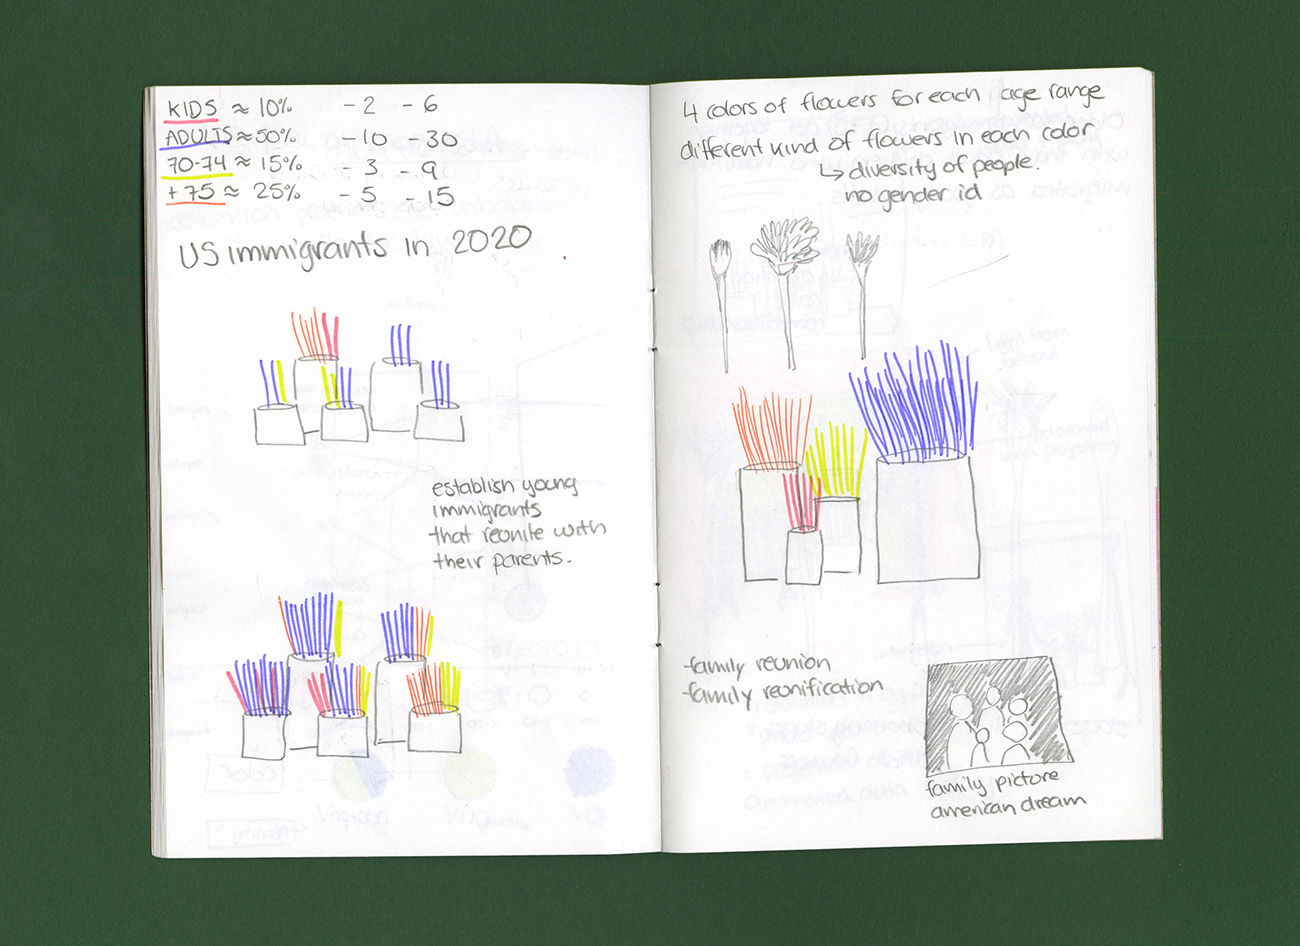 KIDS ≈ 10% - 2 - 6
ADULTS ≈ 50% - 10 - 30
70-74 ≈ 15% - 3 - 9
+75 ≈ 25% - 5 - 15
US immigrants in 2020
establish young
immigrants
that reunite with
their parents.
4 colors of flowers for each age range
different kind of flowers in each color
↳ diversity of people.
no gender id
-family reunion
-family reunification
family picture
american dream